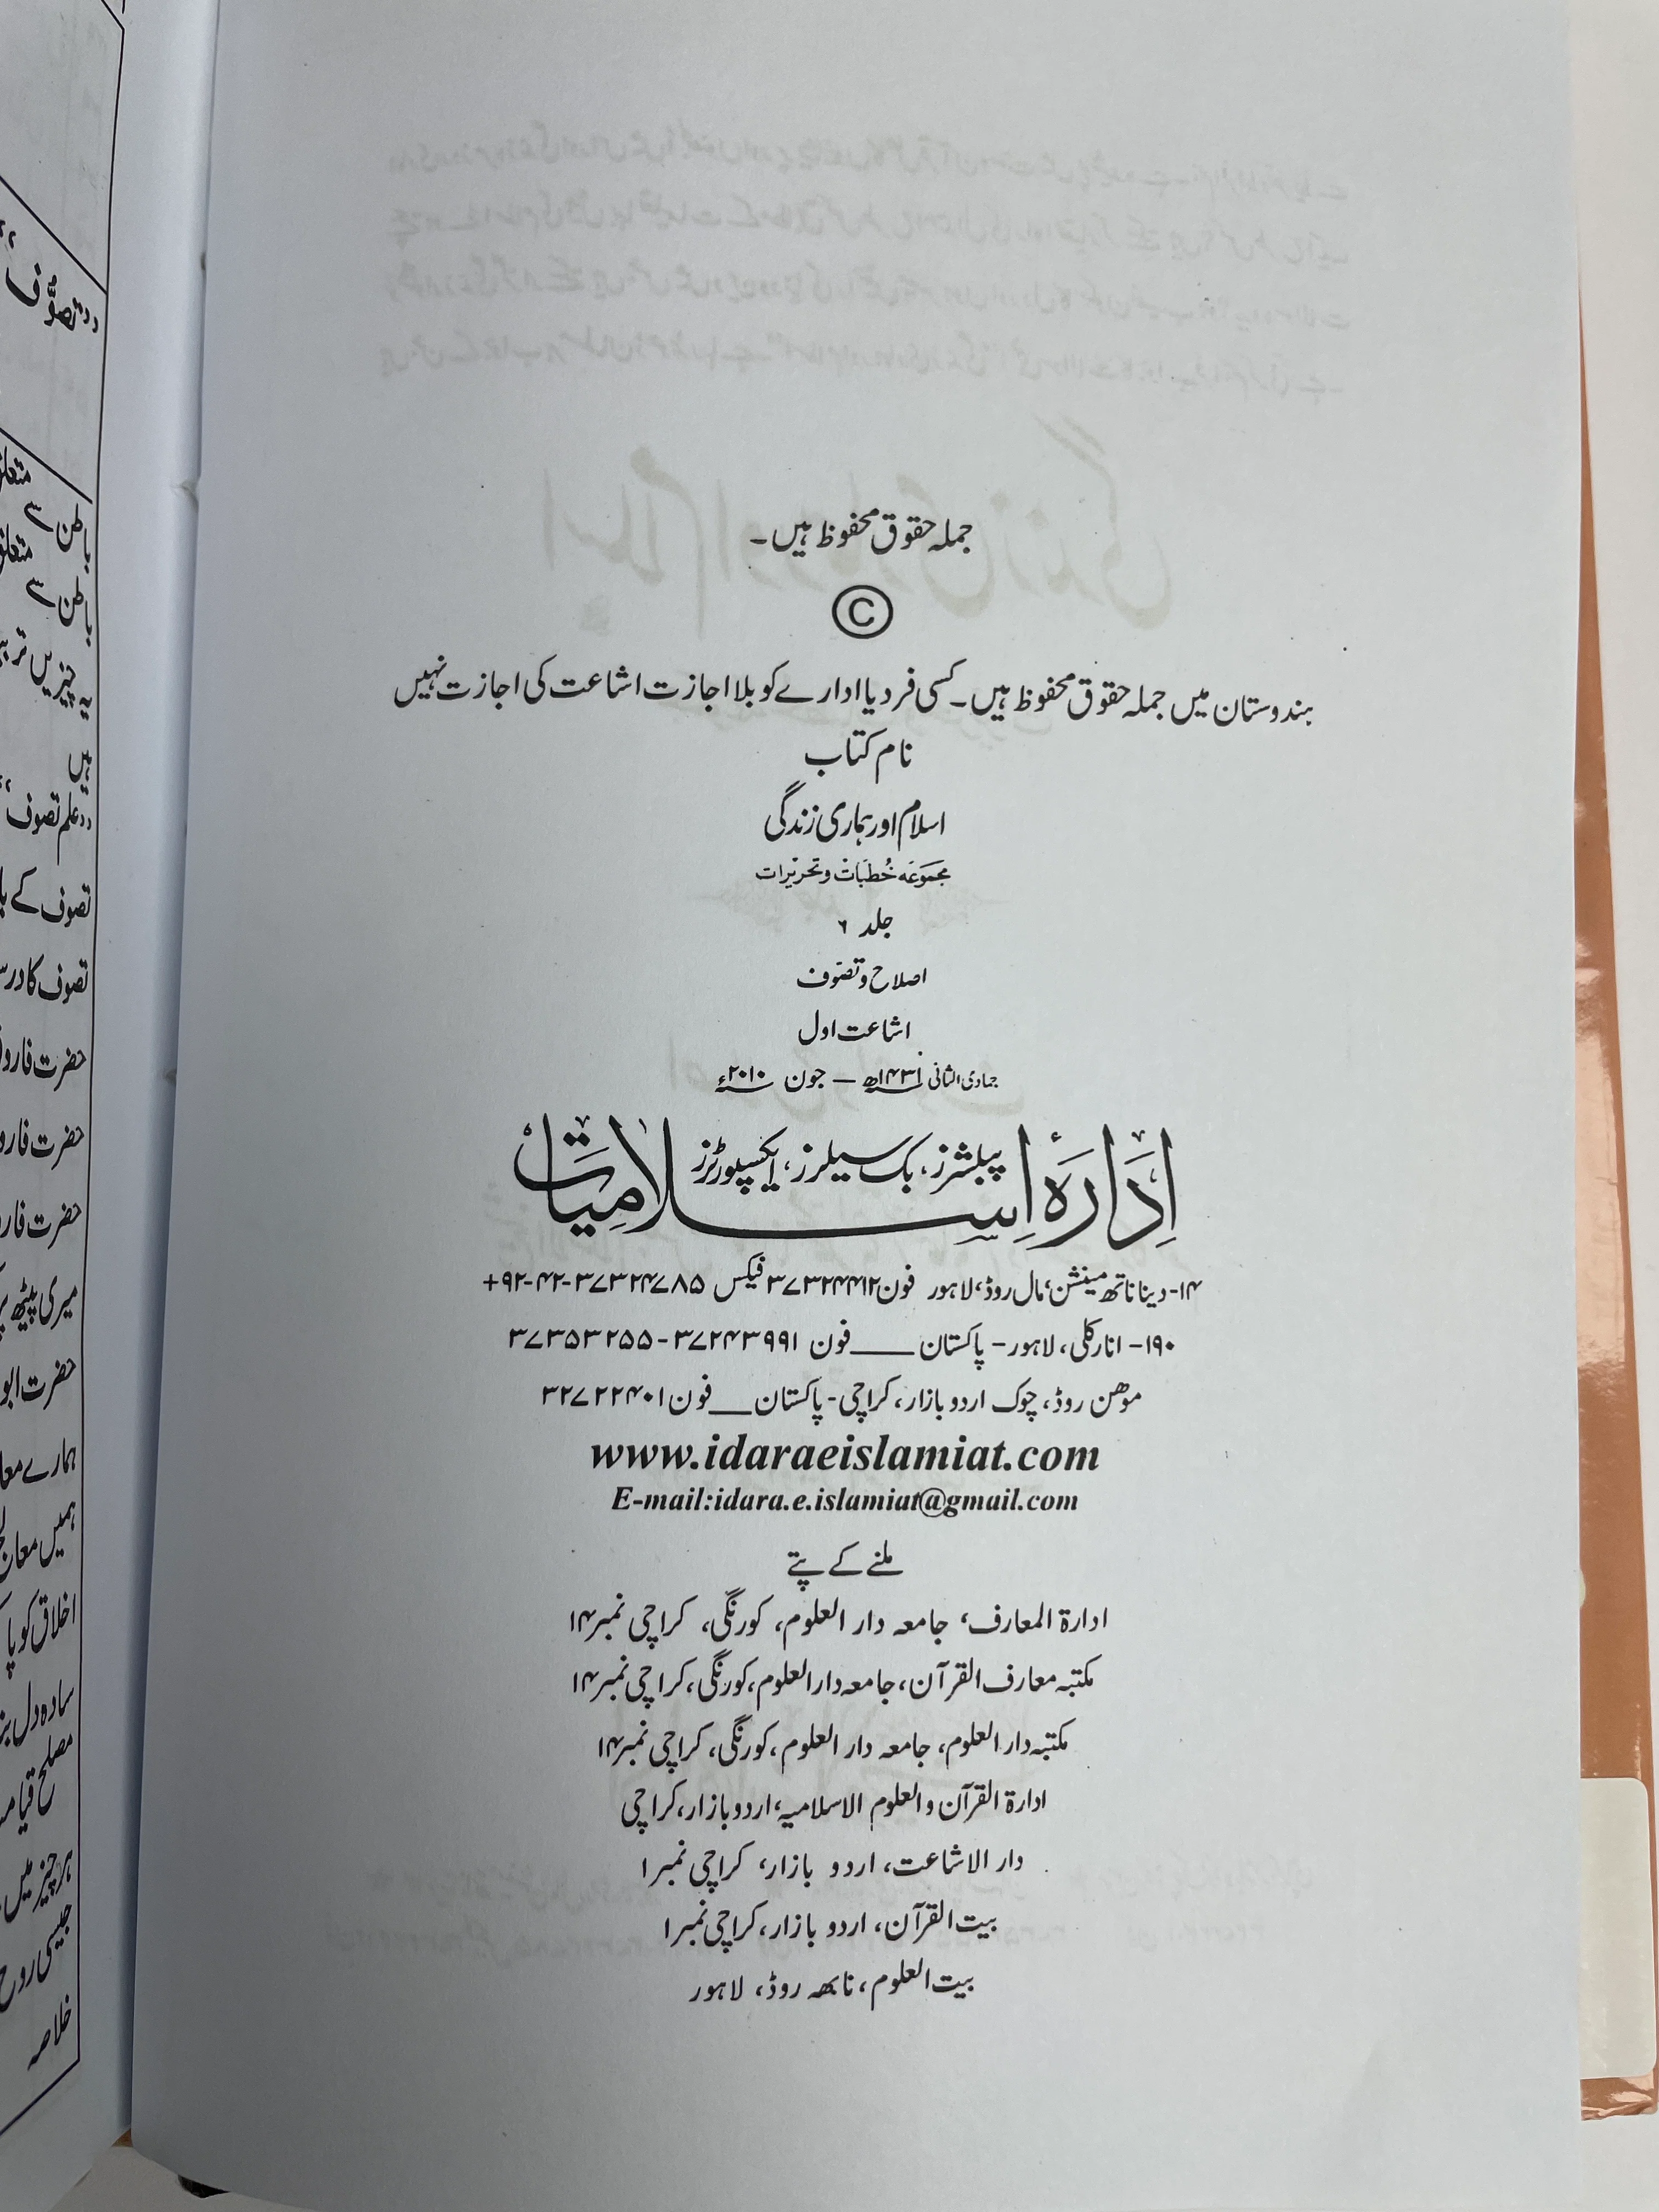 جملہ حقوق محفوظ ہیں۔
©
ہندوستان میں جملہ حقوق محفوظ ہیں۔ کسی فرد یا ادارے کو بلا اجازت اشاعت کی اجازت نہیں
نام کتاب
اسلام اور ہماری زندگی
مجموعہ خُطبات و تحریرات
جلد ۶
اصلاح و تصوّف
اشاعت اول
جمادی الثانی ۱۴۳۱ھ — جون ۲۰۱۰ء
اِدَارَۂ اِسلامیات
پبلشرز، بک سیلرز، ایکسپورٹرز
۱۴- دینا ناتھ مینشن، مال روڈ، لاہور فون ۳۷۳۲۴۴۱۲ فیکس ۳۷۳۲۴۷۸۵-۴۲-۹۲+
۱۹۰- انارکلی، لاہور- پاکستان ـــــ فون ۳۷۲۴۳۹۹۱-۳۷۳۵۳۲۵۵
موھن روڈ، چوک اردو بازار، کراچی- پاکستان ـــ فون ۳۲۷۲۲۴۰۱
www.idaraeislamiat.com
E-mail:idara.e.islamiat@gmail.com
ملنے کے پتے
ادارۃ المعارف، جامعہ دار العلوم، کورنگی، کراچی نمبر ۱۴
مکتبہ معارف القرآن، جامعہ دار العلوم، کورنگی، کراچی نمبر ۱۴
مکتبہ دار العلوم، جامعہ دار العلوم، کورنگی، کراچی نمبر ۱۴
ادارۃ القرآن والعلوم الاسلامیہ، اردو بازار، کراچی
دار الاشاعت، اردو بازار، کراچی نمبر ۱
بیت القرآن، اردو بازار، کراچی نمبر ۱
بیت العلوم، نابھہ روڈ، لاہور
‘‘تصوُّف’’
متعلق
باطن سے
متعلق
باطن سے
ہیں
‘‘علم تصوف’’
تصوف کے
حضرت
حضرت
حضرت
میری پیٹھ
حضرت ابو
ہمارے
ہمیں
اخلاق کو
سادہ دل
مصلح
ہر چیز میں
جیسی روح
خلاصہ